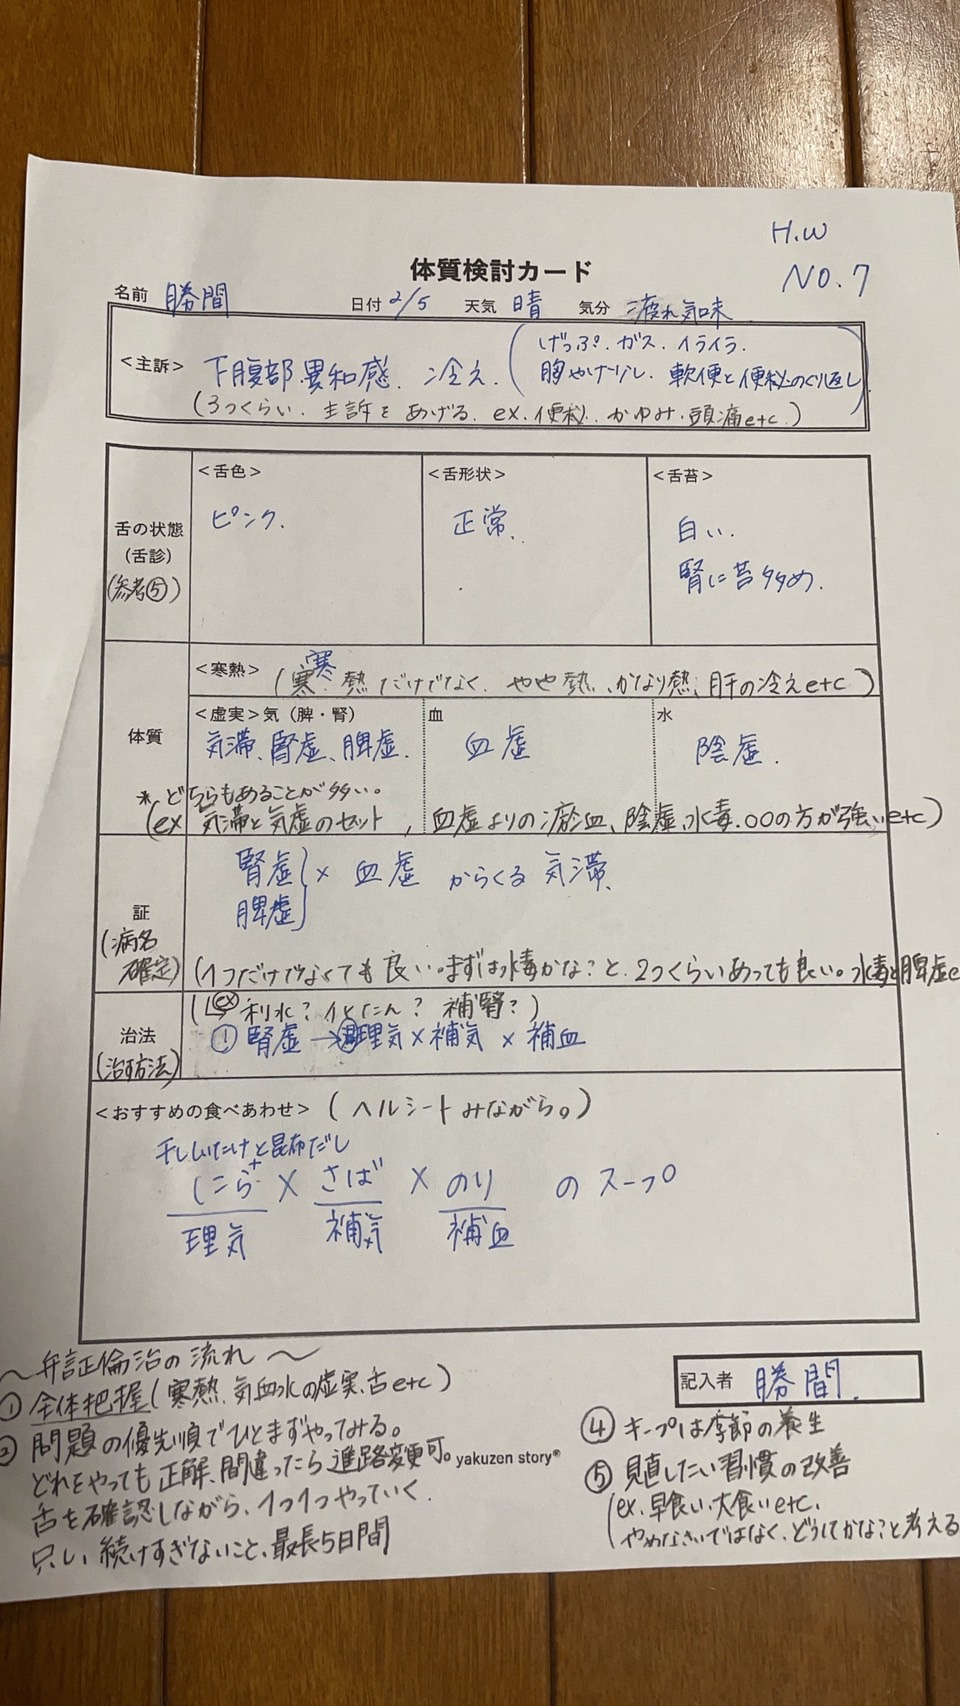 H.W
NO.7
体質検討カード
名前 勝間 日付 2/5 天気 晴 気分 疲れ気味
<主訴> 下腹部異和感、冷え、(げっぷ、ガス、イライラ、
胸やけなし、軟便と便秘のくり返し)
(3つくらい、主訴をあげる、ex、便秘、かゆみ、頭痛etc、)
<舌色> <舌形状> <舌苔>
舌の状態
(舌診)
(参考⑤)
ピンク、 正常、 白い、
腎に苔多め、
体質
<寒熱> 寒
(寒、熱だけでなく、やや熱、かなり熱、肝の冷えetc)
<虚実>気(脾・腎) 血 水
気滞、腎虚、脾虚、 血虚 陰虚、
*どちらもあることが多い。
(ex 気滞と気虚のセット、血虚よりの瘀血、陰虚、水毒、〇〇の方が強いetc)
証
(病名
確定)
腎虚
脾虚 × 血虚 からくる 気滞、
(1つだけでなくても良い。まずは水毒かなこと、2つくらいあっても良い。水毒と脾虚e
治法
(治す方法)
(ex 利水?化たん?補腎?)
① 腎虚→理気×補気×補血
<おすすめの食べあわせ> (ヘルシートみながら。)
干ししいたけと昆布だし
+
にら × さば × のり のスープ
理気 補気 補血
〜弁証倫治の流れ〜
① 全体把握(寒熱、気血水の虚実、舌etc)
② 問題の優先順でひとまずやってみる。
どれをやっても正解、間違ったら進路変更可。
舌を確認しながら、1つ1つやっていく、
只し、続けすぎないこと、最長5日間
yakuzen story®
記入者 勝間
④ キープは季節の養生
⑤ 見直したい習慣の改善
(ex、早食い、大食いetc、
やめなさいではなく、どうしてかなこと考える